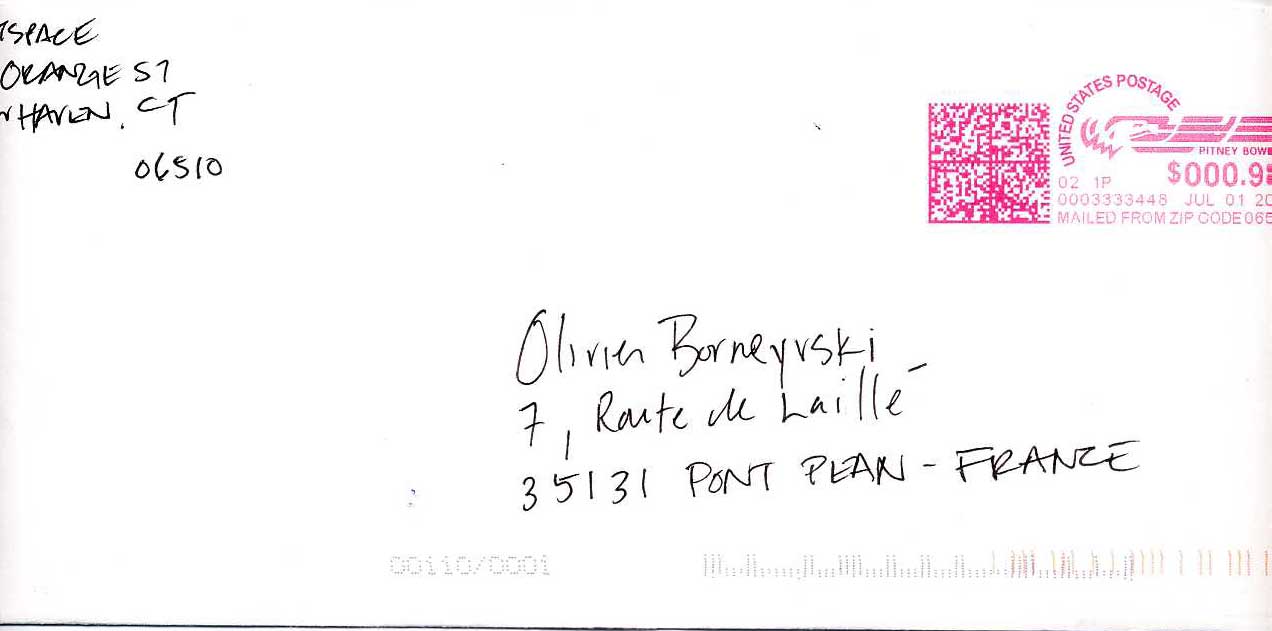 TSPACE
ORANGE ST
W HAVEN, CT
06510
UNITED STATES POSTAGE
PITNEY BOWE
$000.9
02 1P
0003333448 JUL 01 20
MAILED FROM ZIP CODE 065
Olivier Borneyvski
7, Route de Laillé
35131 PONT PEAN - FRANCE
00110/0001